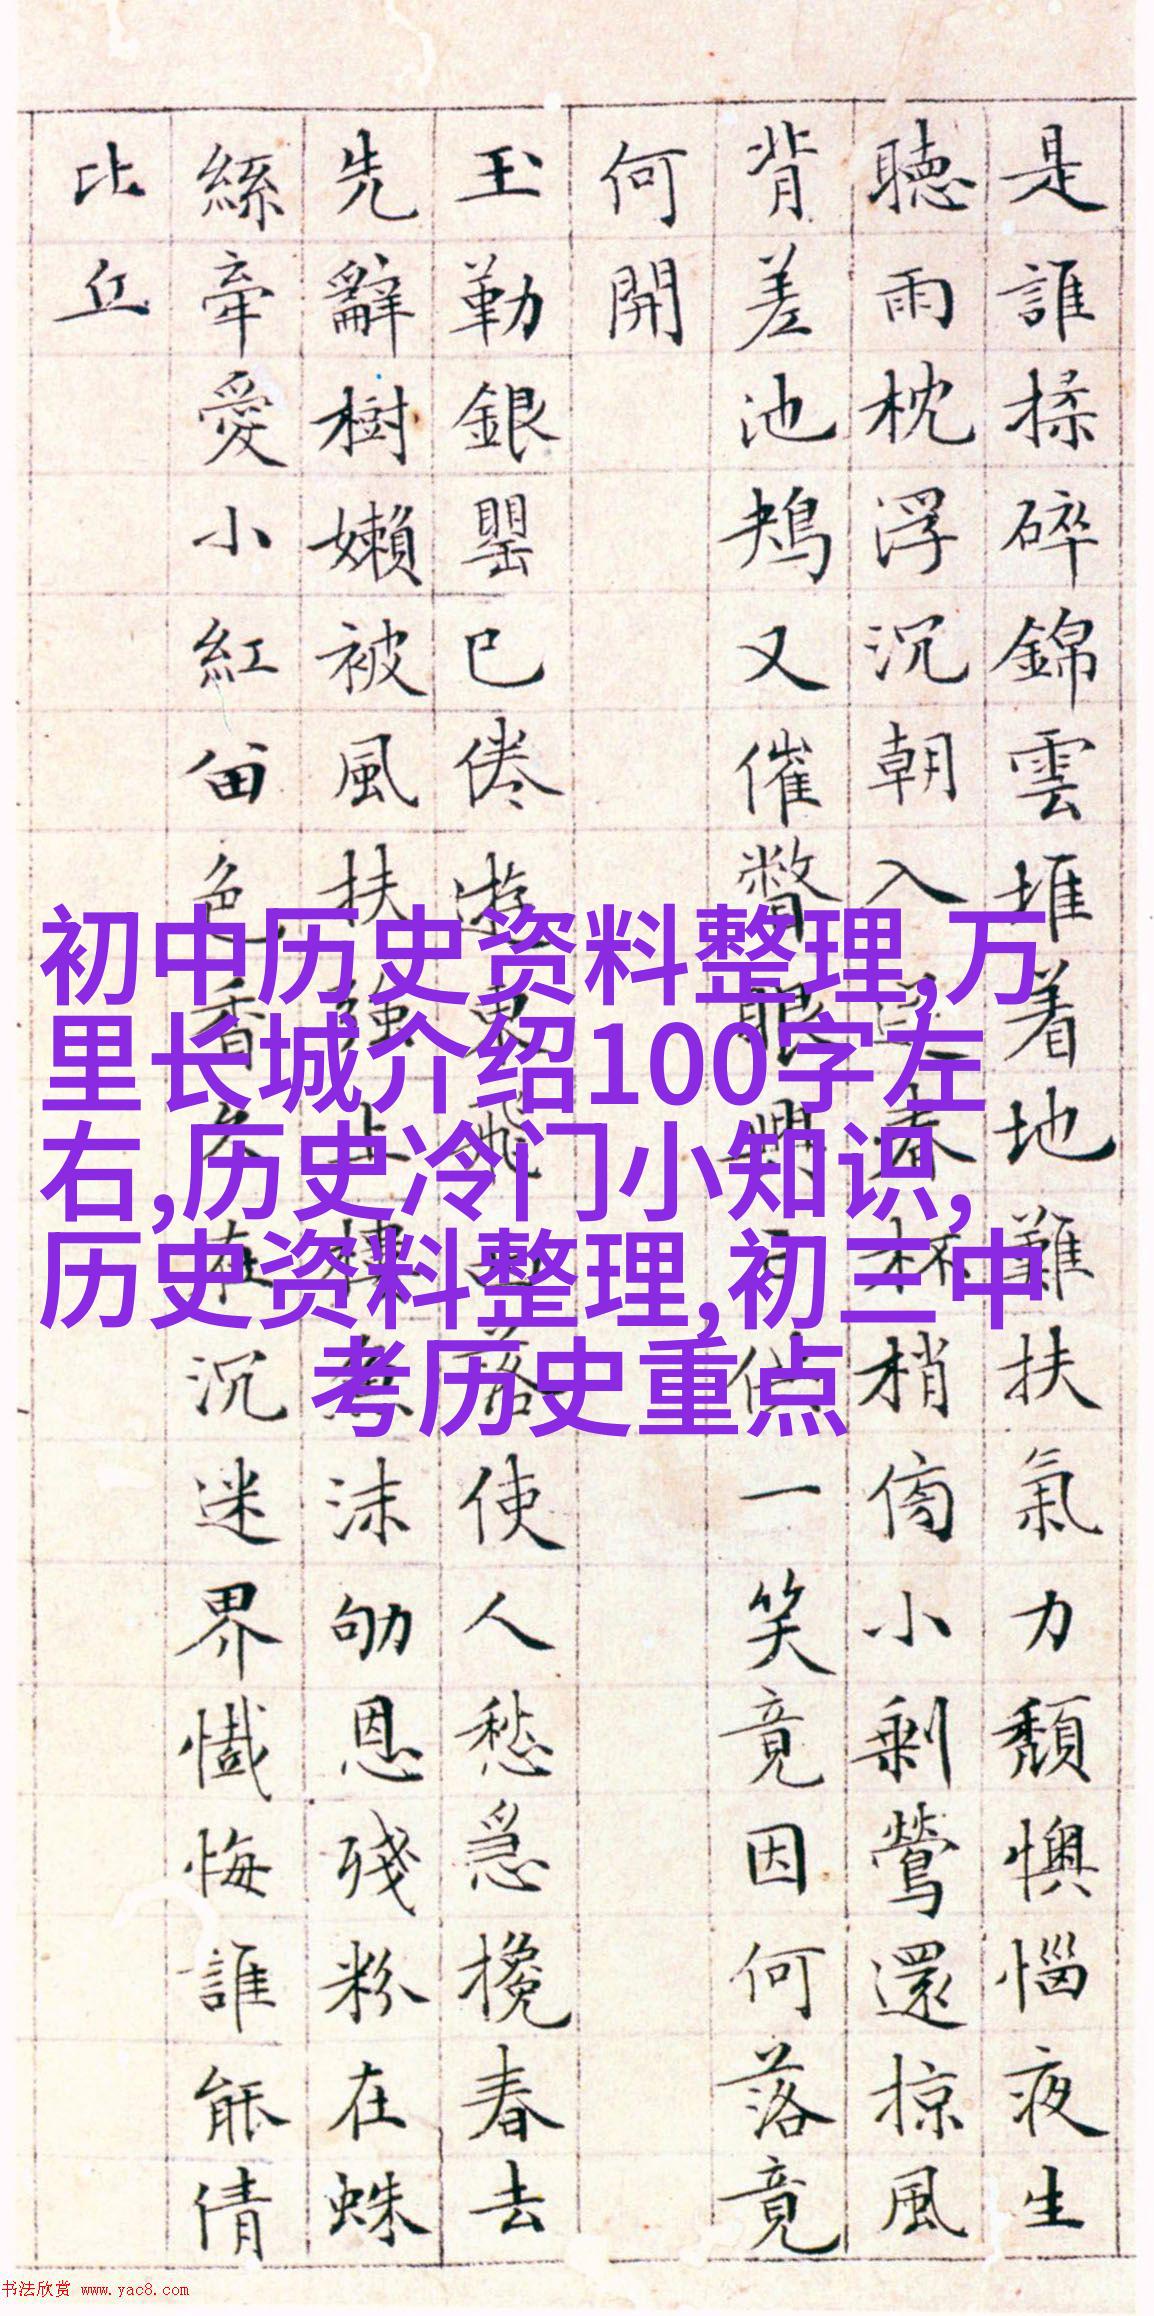 是誰揉碎錦雲堆着地難扶氣力頹懊惱夜生
聽雨枕浮沉朝入春杯梢傍小剩鶯還掠風
背差池鴂又催瞥眼興亡供一笑竟因何落竟
何開
玉勒銀罌已倦遊東飛西落使人愁急攙春去
先辭樹嬾被風扶強上樓魚沫劬恩殘粉在蛛
絲牽愛小紅留色香久在沉迷界懺悔誰能倩
比丘
初中历史资料整理,万
里长城介绍100字左
右,历史冷门小知识,
历史资料整理,初三中
考历史重点
书法欣赏 www.yac8.com